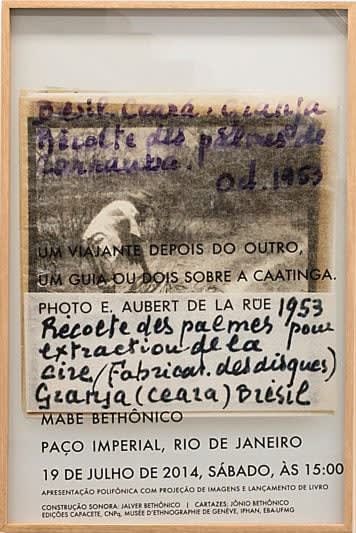 Brésil. Ceará. Granja
Récolte des palmes de
Oct. 1953
UM VIAJANTE DEPOIS DO OUTRO,
UM GUIA OU DOIS SOBRE A CAATINGA.
PHOTO E. AUBERT DE LA RÜE 1953
Récolte des palmes pour
extraction de la
cire (Fabricat. des disques)
Granja (Ceara) Brésil
MABE BETHÔNICO
PAÇO IMPERIAL, RIO DE JANEIRO
19 DE JULHO DE 2014, SÁBADO, ÀS 15:00
APRESENTAÇÃO POLIFÔNICA COM PROJEÇÃO DE IMAGENS E LANÇAMENTO DE LIVRO
CONSTRUÇÃO SONORA: JALVER BETHÔNICO | CARTAZES: JÔNIO BETHÔNICO
EDIÇÕES CAPACETE, CNPq, MUSÉE D'ETHNOGRAPHIE DE GENÈVE, IPHAN, EBA-UFMG